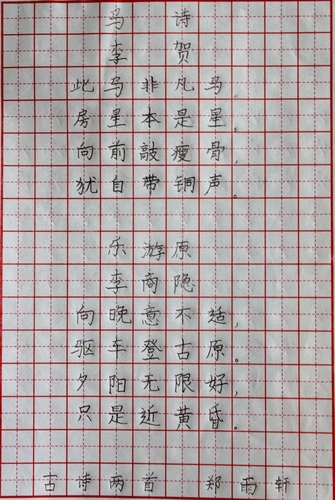 马诗
李贺
此马非凡马,
房星本是星。
向前敲瘦骨,
犹自带铜声。
乐游原
李商隐
向晚意不适,
驱车登古原。
夕阳无限好,
只是近黄昏。
古诗两首 郑雨轩